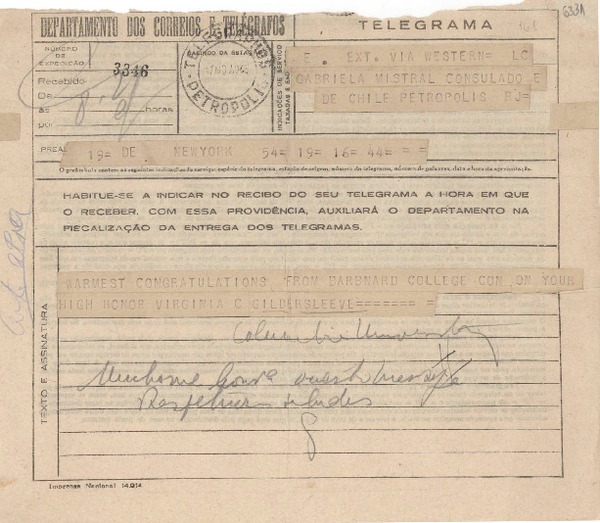 DEPARTAMENTO DOS CORREIOS E TELÉGRAFOS
TELEGRAMA
633A
NÚMERO DE EXPEDIÇÃO
3346
Recebido
De
às horas
por
CARIMBO DA ESTAÇÃO
PETROPOLIS
INDICAÇÕES DE SERVIÇO TAXADAS E
EXT. VIA WESTERN= LC
GABRIELA MISTRAL CONSULADO E
DE CHILE PETROPOLIS RJ=
19= DE NEWYORK 54= 19= 16= 44= = =
HABITUE-SE A INDICAR NO RECIBO DO SEU TELEGRAMA A HORA EM QUE
O RECEBER. COM ESSA PROVIDÊNCIA, AUXILIARÁ O DEPARTAMENTO NA
FISCALIZAÇÃO DA ENTREGA DOS TELEGRAMAS.
TEXTO E ASSINATURA
WARMEST CONGRATULATIONS FROM BARBNARD COLLEGE CON ON YOUR
HIGH HONOR VIRGINIA C GILDERSLEEVE======= =
Columbia University
Imprensa Nacional 14.914